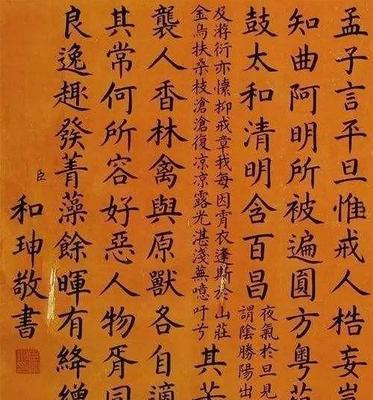 孟子言平旦惟戒人梏妄豈
知曲阿明所被遍圓方粵
鼓太和清明含百昌
夜氣於旦見
謂陰勝陽出
及游衍亦懍抑戒章我每因宵衣逢斯於山莊
金烏扶桑枝滄滄復凉凉露光湛淺蕪噫吁兮
其
襲人香林禽與原獸各自適
其常何所容好惡人物胥同
良逸趣發菁藻餘暉有絳繒
臣和珅敬書